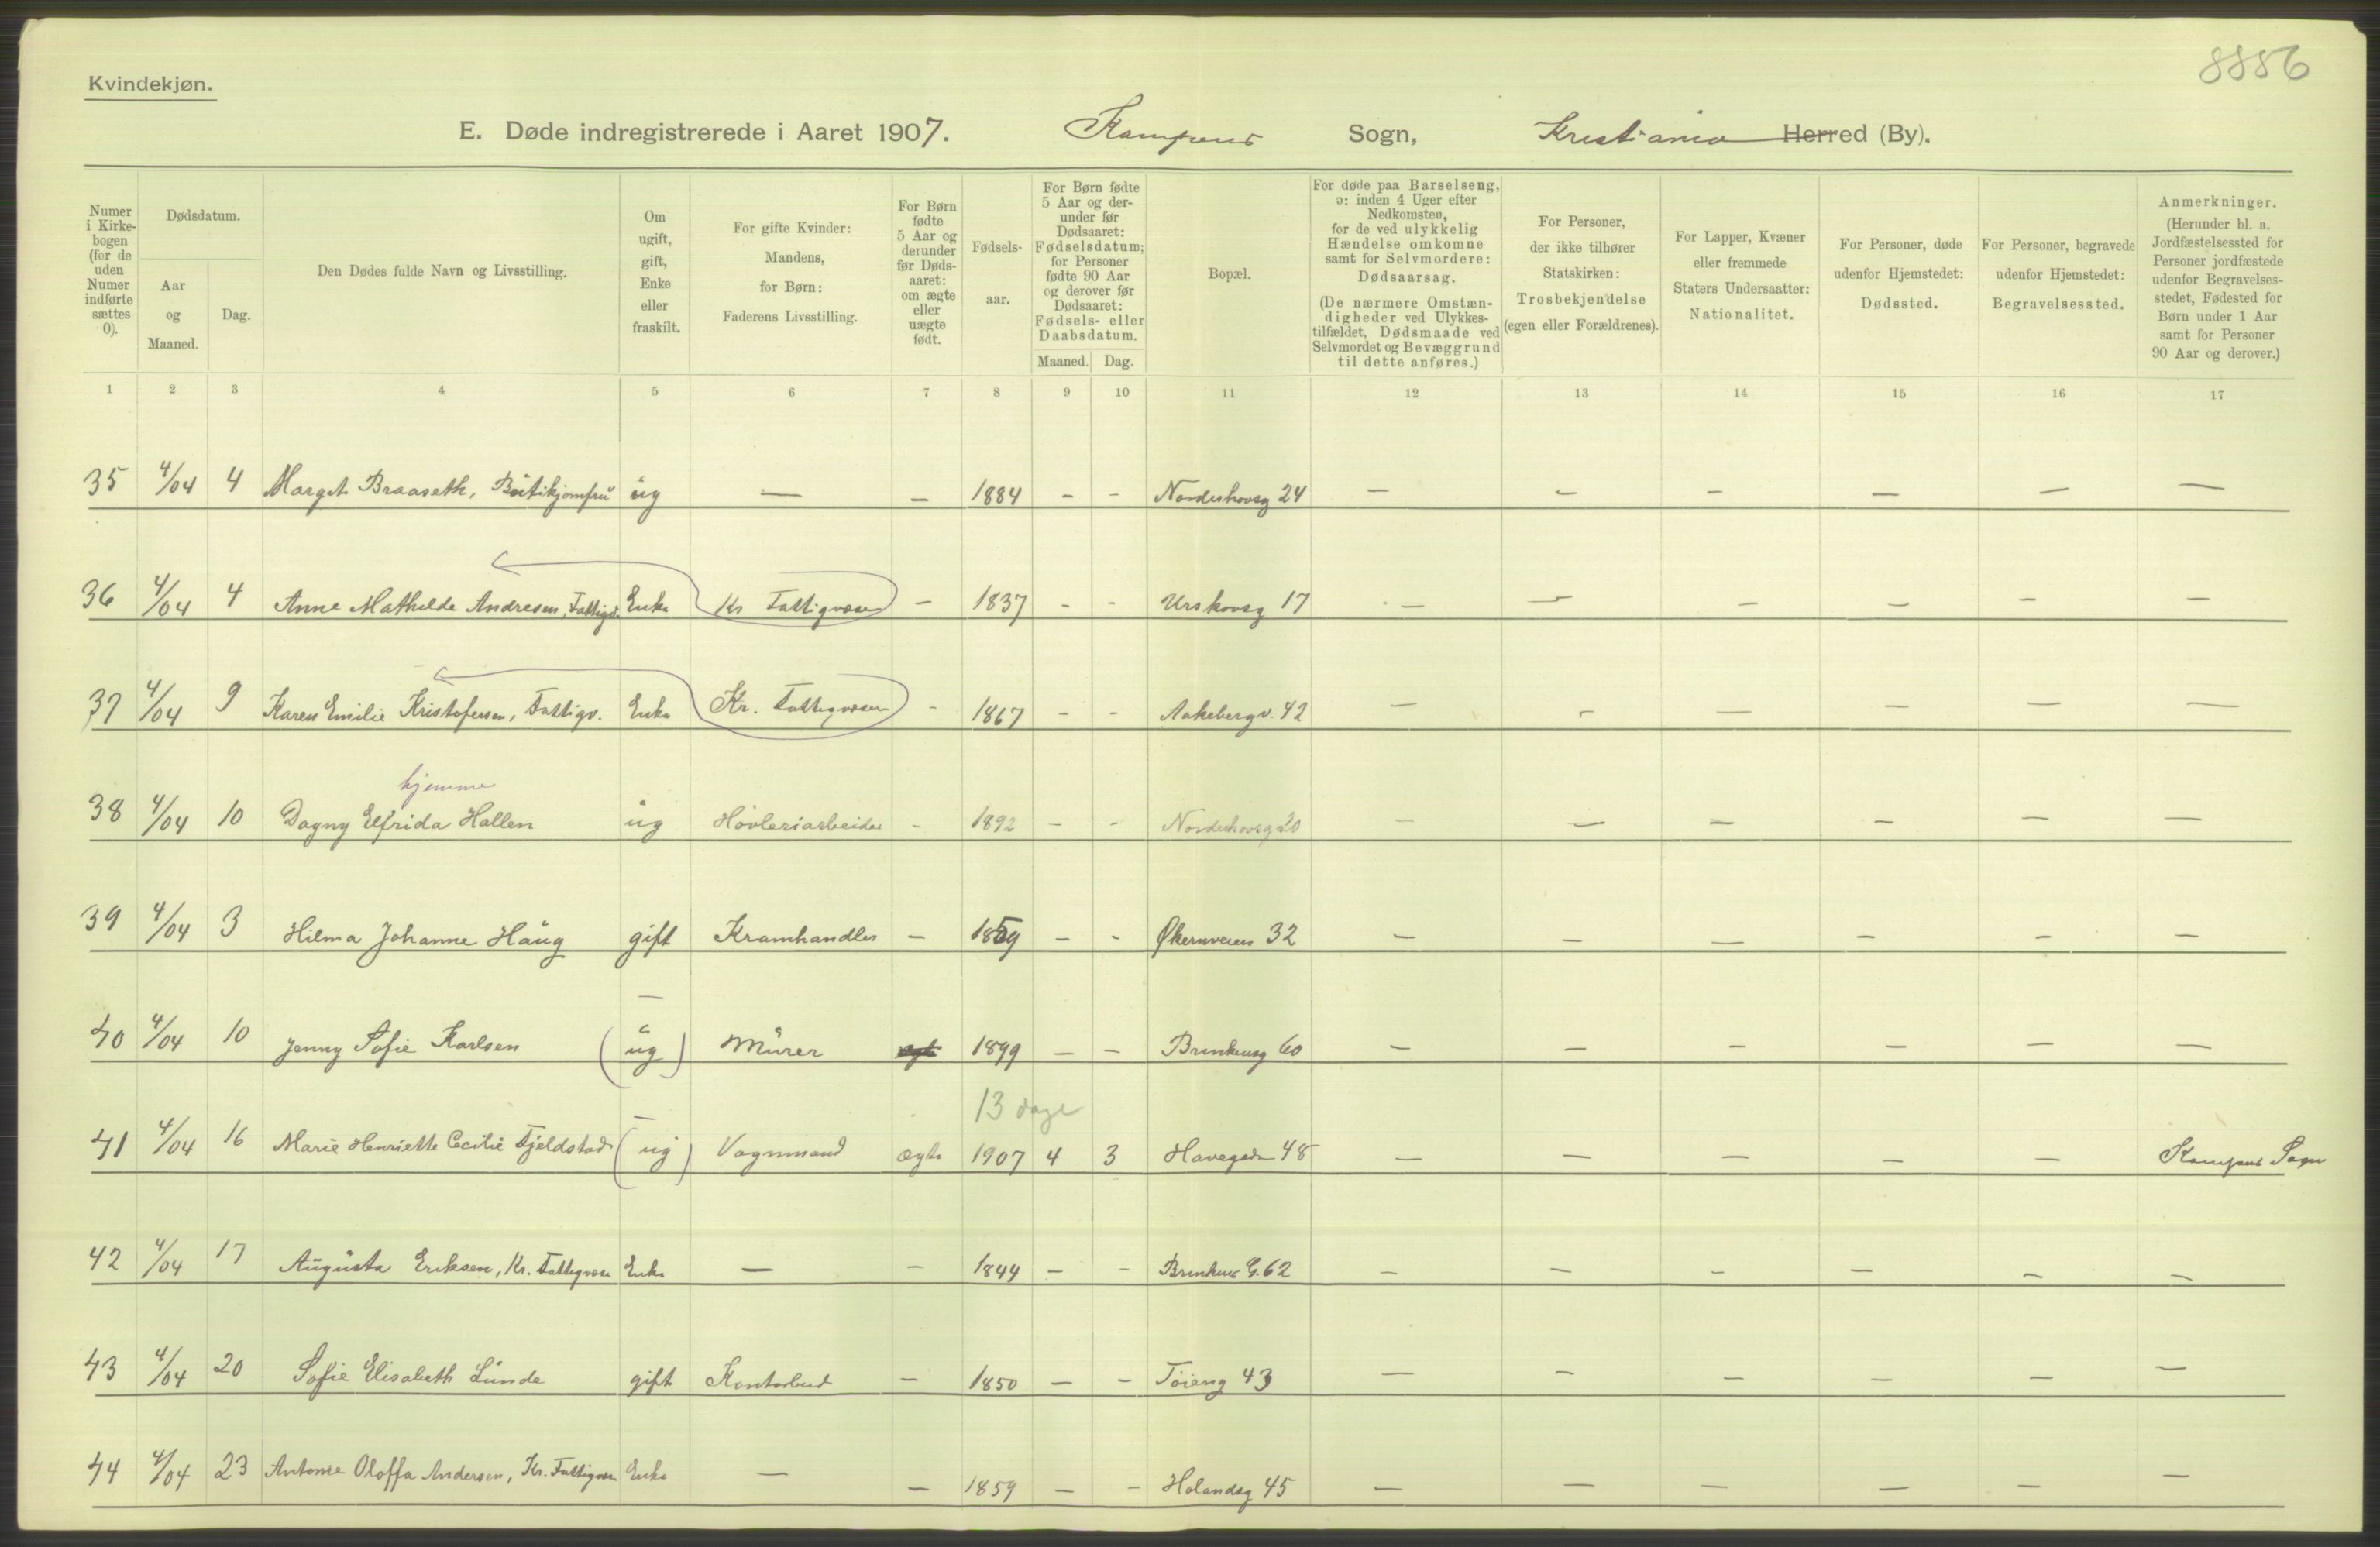 8886
Kvindekjøn.
E. Døde indregistrerede i Aaret 1907. Kampens Sogn, Kristiania Herred (By).
Numer i Kirkebogen (for de uden Numer indførte sættes 0).
Dødsdatum.
Aar og Maaned.
Dag.
Den Dødes fulde Navn og Livsstilling.
Om ugift, gift, Enke eller fraskilt.
For gifte Kvinder: Mandens, for Børn: Faderens Livsstilling.
For Børn fødte 5 Aar og derunder før Dødsaaret: om ægte eller uægte født.
Fødselsaar.
For Børn fødte 5 Aar og derunder før Dødsaaret: Fødselsdatum; for Personer fødte 90 Aar og derover før Dødsaaret: Fødsels- eller Daabsdatum.
Maaned. Dag.
Bopæl.
For døde paa Barselseng, ɔ: inden 4 Uger efter Nedkomsten, for de ved ulykkelig Hændelse omkomne samt for Selvmordere: Dødsaarsag.
(De nærmere Omstændigheder ved Ulykkestilfældet, Dødsmaade ved Selvmordet og Bevæggrund til dette anføres.)
For Personer, der ikke tilhører Statskirken: Trosbekjendelse (egen eller Forældrenes).
For Lapper, Kvæner eller fremmede Staters Undersaatter: Nationalitet.
For Personer, døde udenfor Hjemstedet: Dødssted.
For Personer, begravede udenfor Hjemstedet: Begravelsessted.
Anmerkninger. (Herunder bl. a. Jordfæstelsessted for Personer jordfæstede udenfor Begravelsesstedet, Fødested for Børn under 1 Aar samt for Personer 90 Aar og derover.)
1 2 3 4 5 6 7 8 9 10 11 12 13 14 15 16 17
35 4/04 4 Margit Braaseth, Butikjomfru ug — — 1884 - - Norderhovsg 24 — — — — — —
36 4/04 4 Anne Mathilde Andresen, Fattigv. Enke Kr Fattigvæsen — 1837 - - Urskovsg 17 — — — — — —
37 4/04 9 Karen Emilie Kristofersen, Fattigv. Enke Kr. Fattigvæsen - 1867 - - Aakebergv. 42 — — — — — —
hjemme
38 4/04 10 Dagny Elfrida Hallen ug Høvleriarbeider - 1892 - - Norderhovsg 20 — — — — — —
39 4/04 3 Hilma Johanne Haug gift Kramhandler — 1859 — - Økernveien 32 — — — — — —
—
40 4/04 10 Jenny Sofie Karlsen (ug) Murer ægte 1899 — — Brinkensg 60 — — — — — —
13 dage
—
41 4/04 16 Marie Henriette Cecilie Fjeldstad (ug) Vognmand ægte 1907 4 3 Havegaden 48 — — — — — Kampens Sogn
42 4/04 17 Augusta Eriksen, Kr. Fattigvæsen Enke — — 1844 — - Brinkens G. 62 — — — — — —
43 4/04 20 Sofie Elisabeth Lunde gift Kontorbud — 1850 — - Tøieng 43 — — — — — —
44 4/04 23 Antonie Oloffa Andersen, Kr. Fattigvæsen Enke — — 1859 — - Holandsg 45 — — — — — —